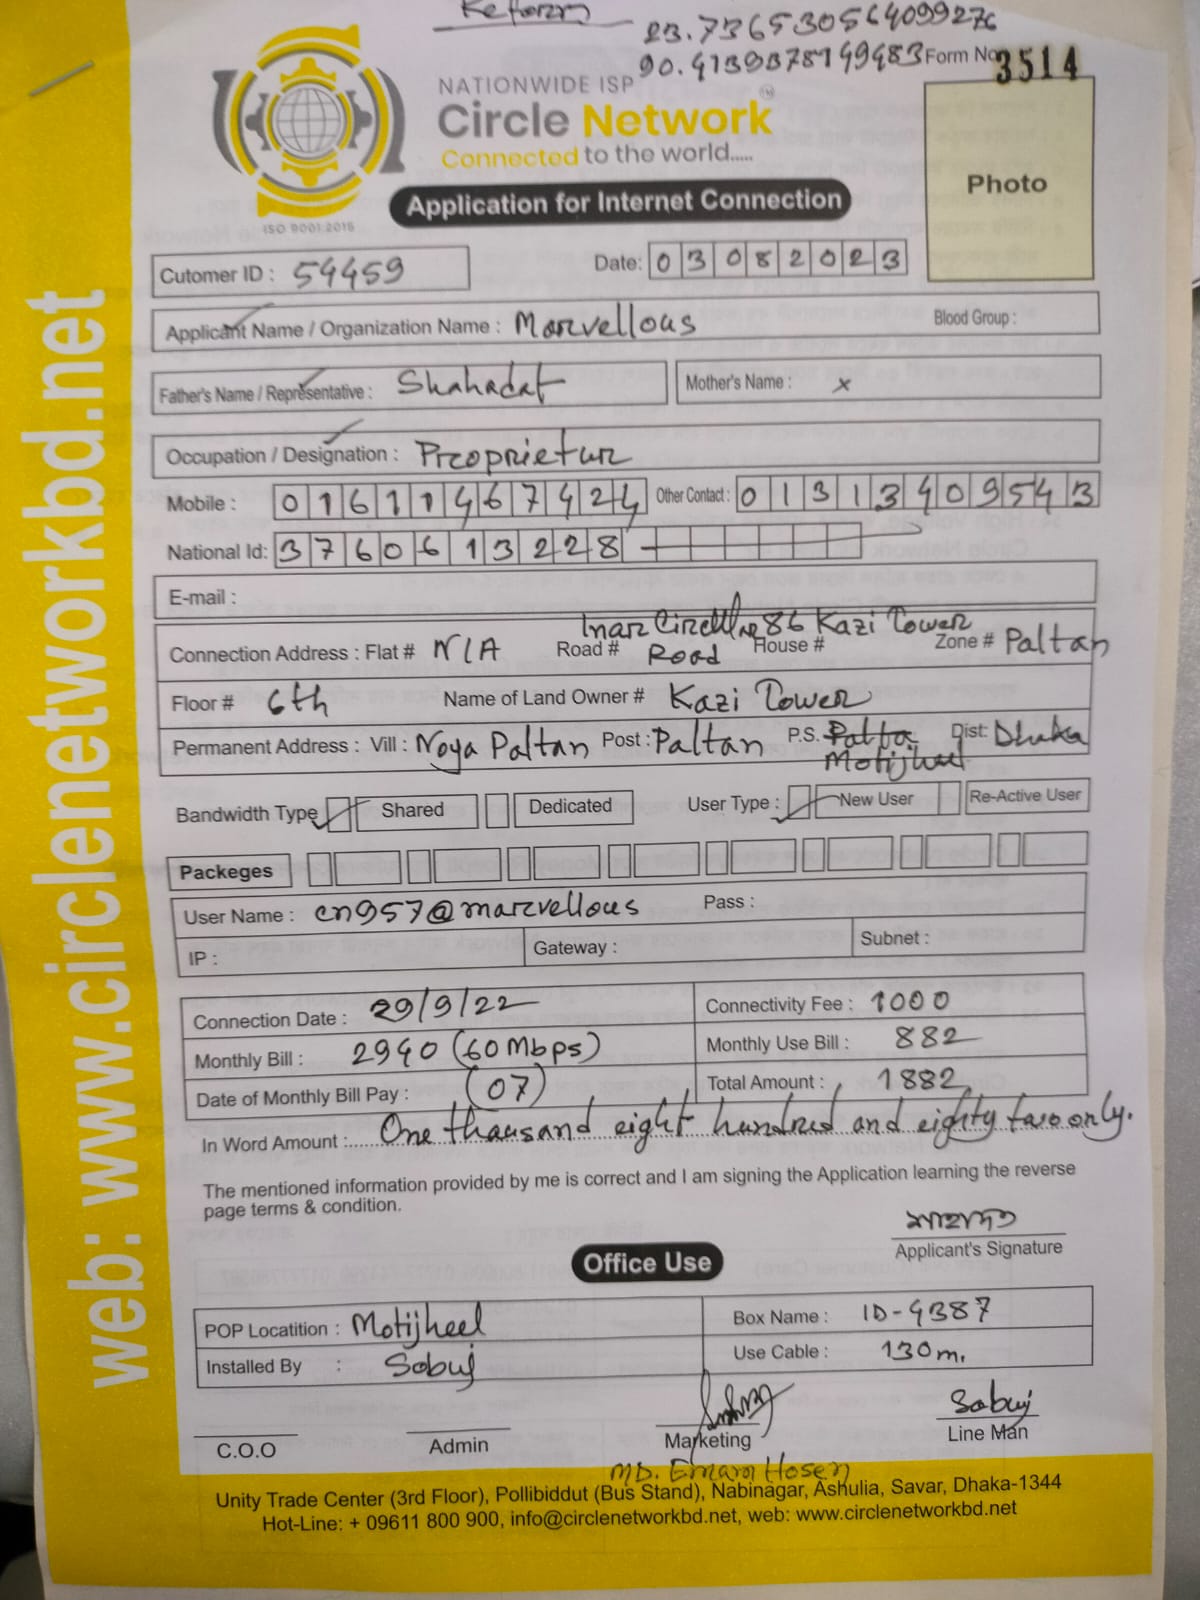 Reform
23.736530564099276
90.4139878149483 Form No. 3514
NATIONWIDE ISP
Circle Network TM
Connected to the world.....
ISO 9001:2015
Application for Internet Connection
Photo
Cutomer ID : 54459 Date: 03082023
Applicant Name / Organization Name : Marvellous Blood Group :
Father's Name / Representative : Shahadat Mother's Name : x
Occupation / Designation : Proprietur
Mobile : 01611467424 Other Contact : 01313409543
National Id: 3760613228
E-mail :
Connection Address : Flat # N/A Road # Inar Circular Road House # 86 Kazi Tower Zone # Paltan
Floor # 6th Name of Land Owner # Kazi Tower
Permanent Address : Vill : Noya Paltan Post : Paltan P.S. Motijheel Dist: Dhaka
Bandwidth Type Shared Dedicated User Type : New User Re-Active User
Packeges
User Name : cn957@marvellous Pass :
IP : Gateway : Subnet :
Connection Date : 29/9/22 Connectivity Fee : 1000
Monthly Bill : 2940 (60Mbps) Monthly Use Bill : 882
Date of Monthly Bill Pay : (07) Total Amount : 1882
In Word Amount :..... One thausand eight hundred and eighty two only.
The mentioned information provided by me is correct and I am signing the Application learning the reverse
page terms & condition.
সাহাদাত
Applicant's Signature
Office Use
POP Locatition : Motijheel Box Name : ID-4387
Installed By : Sobuj Use Cable : 130m.
Sobuj
C.O.O Admin Marketing Line Man
MD. Emam Hosen
Unity Trade Center (3rd Floor), Pollibiddut (Bus Stand), Nabinagar, Ashulia, Savar, Dhaka-1344
Hot-Line: + 09611 800 900, info@circlenetworkbd.net, web: www.circlenetworkbd.net
web: www.circlenetworkbd.net